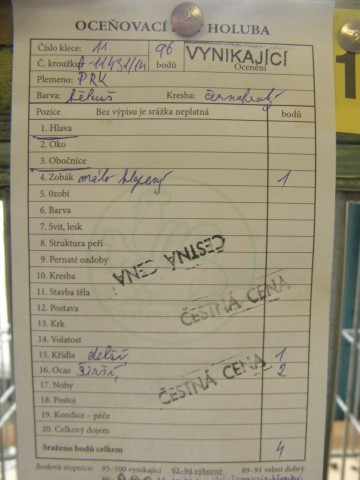 OCEŇOVACÍ HOLUBA
Číslo klece: 11 96 VYNIKAJÍCÍ
Č. kroužku bodů Ocenění
Plemeno: PRK
Barva: Kresba:
Pozice Bez výpisu je srážka neplatná bodů
1. Hlava
2. Oko
3. Obočnice
4. Zobák málo 1
5. Ozobí
6. Barva
7. Svit, lesk
8. Struktura peří
9. Pernaté ozdoby ČESTNÁ CENA
10. Kresba
11. Stavba těla ČESTNÁ CENA
12. Postava
13. Krk
14. Volatost
15. Křídla delší 1
16. Ocas širší 2
17. Nohy ČESTNÁ CENA
18. Postoj
19. Kondice – péče
20. Celkový dojem
Sraženo bodů celkem 4
Bodová stupnice: 95-100 vynikající 92-94 výborný 89-91 velmi dobrý
1